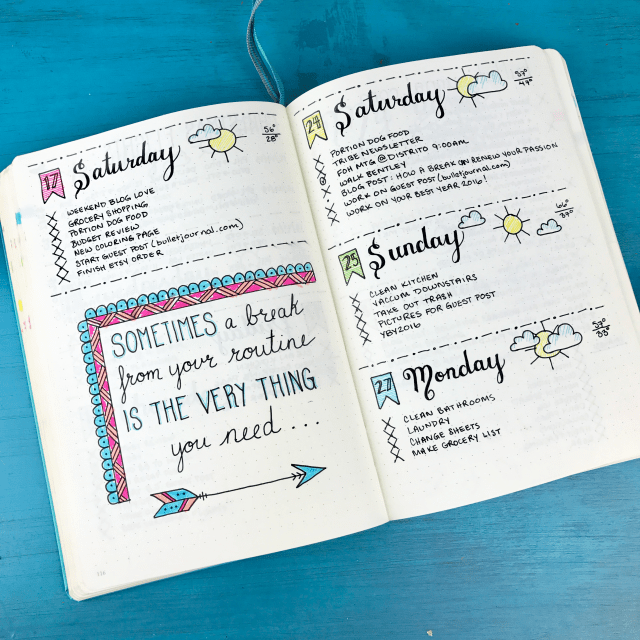 17 Saturday
56°
28°
WEEKEND BLOG LOVE
GROCERY SHOPPING
PORTION DOG FOOD
BUDGET REVIEW
NEW COLORING PAGE
START GUEST POST (bulletjournal.com)
FINISH ETSY ORDER
SOMETIMES a break
from your routine
IS THE VERY THING
you need...
24 Saturday
57°
47°
PORTION DOG FOOD
TRIBE NEWSLETTER
FOH MTG @ DISTRITO 9:00AM
WALK BENTLEY
BLOG POST: HOW A BREAK CAN RENEW YOUR PASSION
WORK ON GUEST POST (bulletjournal.com)
WORK ON YOUR BEST YEAR 2016!
25 Sunday
66°
37°
CLEAN KITCHEN
VACCUM DOWNSTAIRS
TAKE OUT TRASH
PICTURES FOR GUEST POST
YBY2016
27 Monday
CLEAN BATHROOMS
LAUNDRY
CHANGE SHEETS
MAKE GROCERY LIST